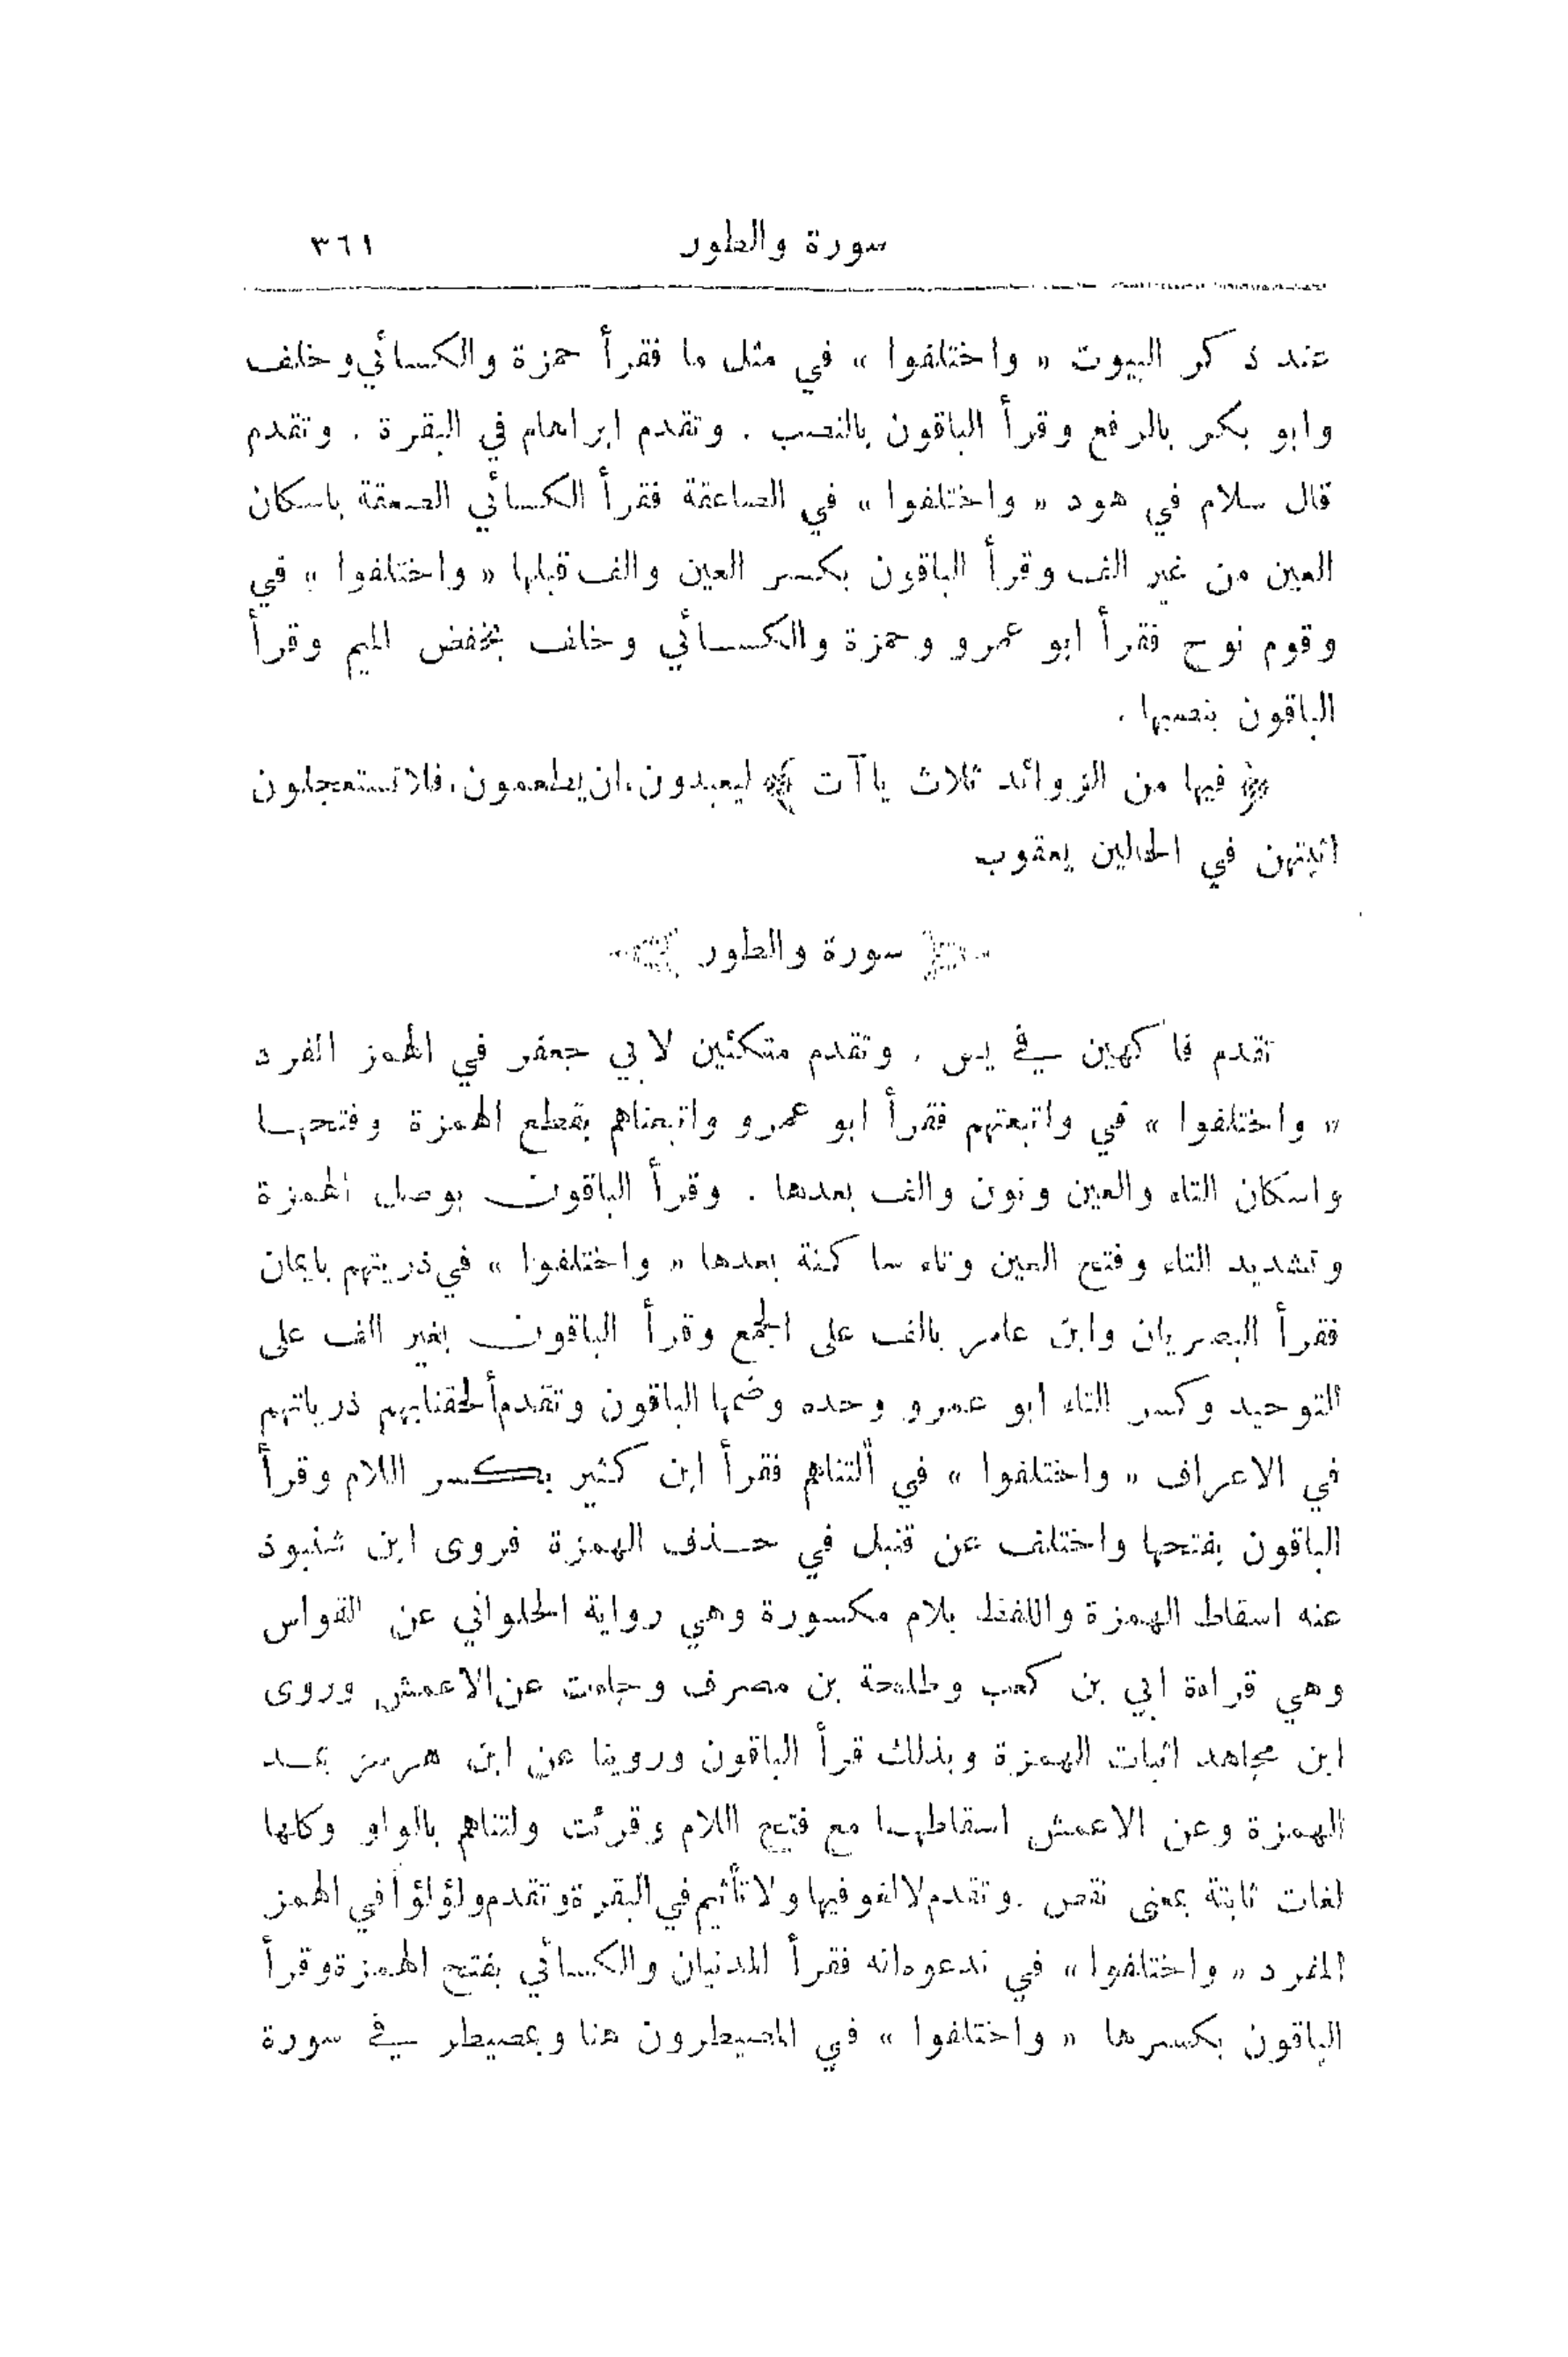 سورة والطور ٣٦١
عند ذكر البيوت « واختلفوا » في مثل ما فقرأ حمزة والكسائي وخلف
وابو بكر بالرفع وقرأ الباقون بالنصب . وتقدم ابراهام في البقرة . وتقدم
قال سلام في هود « واختلفوا » في الصاعقة فقرأ الكسائي الصعقة باسكان
العين من غير الف وقرأ الباقون بكسر العين والف قبلها « واختلفوا » في
وقوم نوح فقرأ ابو عمرو وحمزة والكسائي وخلف بخفض الميم وقرأ
الباقون بنصبها .
﴿ فيها من الزوائد ثلاث يا آت ﴾ ليعبدون، ان يطعمون، فلا تستعجلون
اثبتهن في الحالين يعقوب
﴿ سورة والطور ﴾
تقدم فاكهين في يس . وتقدم متكئين لابي جعفر في الهمز المفرد
« واختلفوا » في واتبعتهم فقرأ ابو عمرو واتبعناهم بقطع الهمزة وفتحها
واسكان التاء والعين ونون والف بعدها . وقرأ الباقون بوصل الهمزة
وتشديد التاء وفتح العين وتاء ساكنة بعدها « واختلفوا » في ذريتهم بايمان
فقرأ البصريان وابن عامر بالف على الجمع وقرأ الباقون بغير الف على
التوحيد وكسر التاء ابو عمرو وحده وضمها الباقون وتقدم ألحقنا بهم ذرياتهم
في الاعراف « واختلفوا » في ألتناهم فقرأ ابن كثير بكسر اللام وقرأ
الباقون بفتحها واختلف عن قنبل في حذف الهمزة فروى ابن شنبوذ
عنه اسقاط الهمزة واللفظ بلام مكسورة وهي رواية الحلواني عن القواس
وهي قراءة ابي بن كعب وطلحة بن مصرف وجاءت عن الاعمش وروى
ابن مجاهد اثبات الهمزة وبذلك قرأ الباقون وروينا عن ابن هرمز بمد
الهمزة وعن الاعمش اسقاطها مع فتح اللام وقرئت ولتناهم بالواو وكلها
لغات ثابتة بمعنى نقص . وتقدم لا لغو فيها ولا تأثيم في البقرة وتقدم ولؤلؤا في الهمز
المفرد « واختلفوا » في ندعوه انه فقرأ المدنيان والكسائي بفتح الهمزة وقرأ
الباقون بكسرها « واختلفوا » في المصيطرون هنا وبمصيطر في سورة